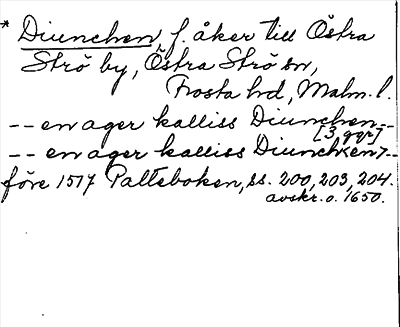 * Diunchen f. åker till Östra
Strö by, Östra Strö sn,
Frosta hd, Malm. l.
-- en ager kalliss Diunchen --
[3 ggr]
-- en ager kalliss Diunchken, --
före 1517 Palteboken, ss. 200, 203, 204.
avskr. o. 1650.